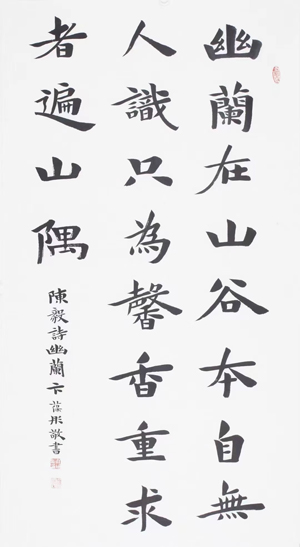 幽蘭在山谷本自無
人識只為馨香重求
者遍山隅
陳毅詩幽蘭卞葆彤敬書